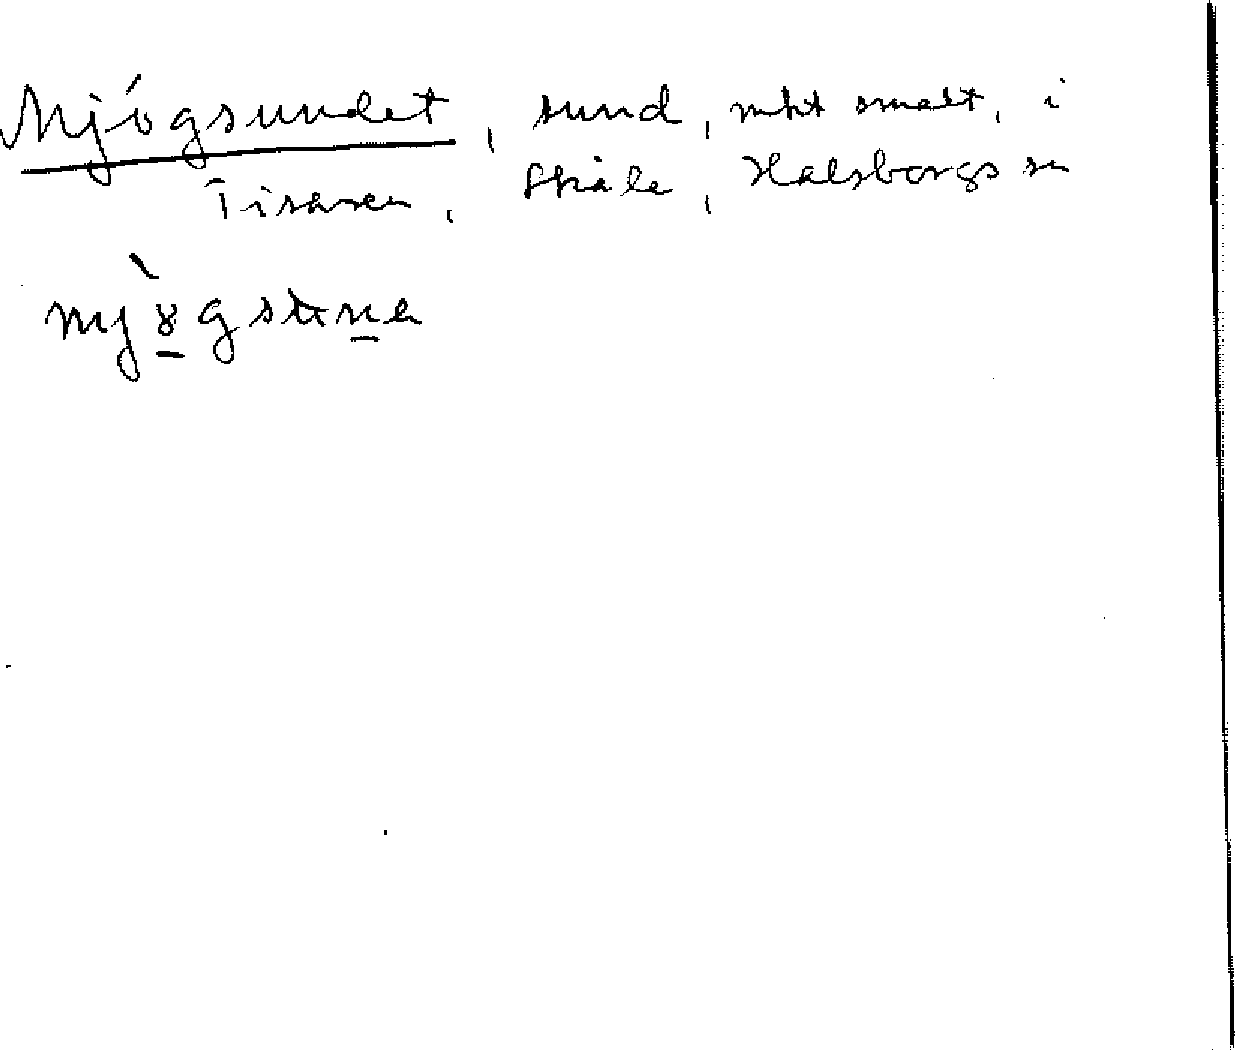 Mjógsundet, sund, mkt smalt, i
Tisaren, Skåle, Halsborgs sn